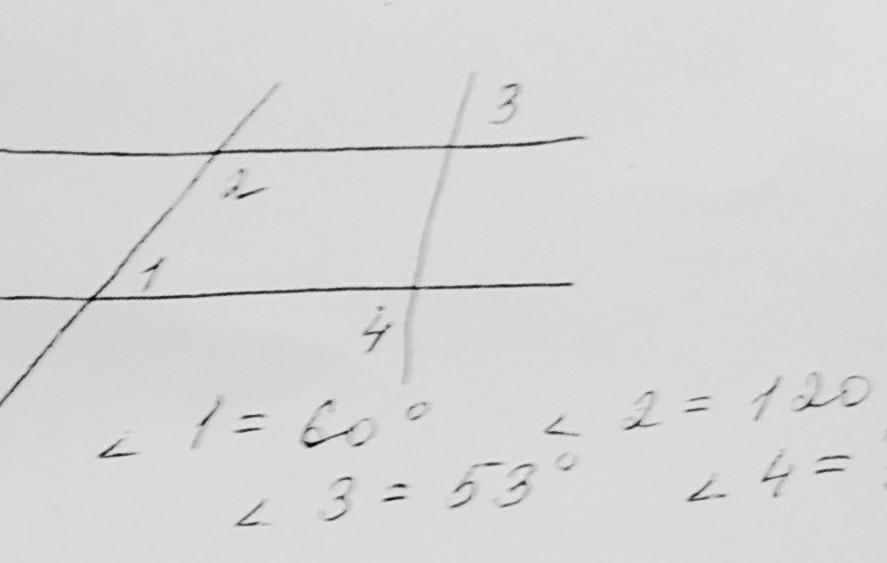 3
2
1
4
∠ 1 = 60° ∠ 2 = 120
∠ 3 = 53° ∠ 4 =